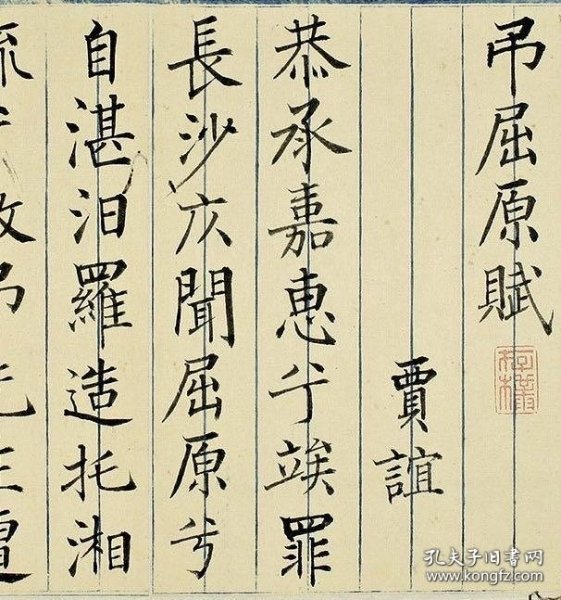 吊屈原賦
賈誼
恭承嘉惠兮竢罪
長沙仄聞屈原兮
自湛汨羅造托湘
流兮敬吊先生遭
孔夫子旧书网
www.kongfz.com